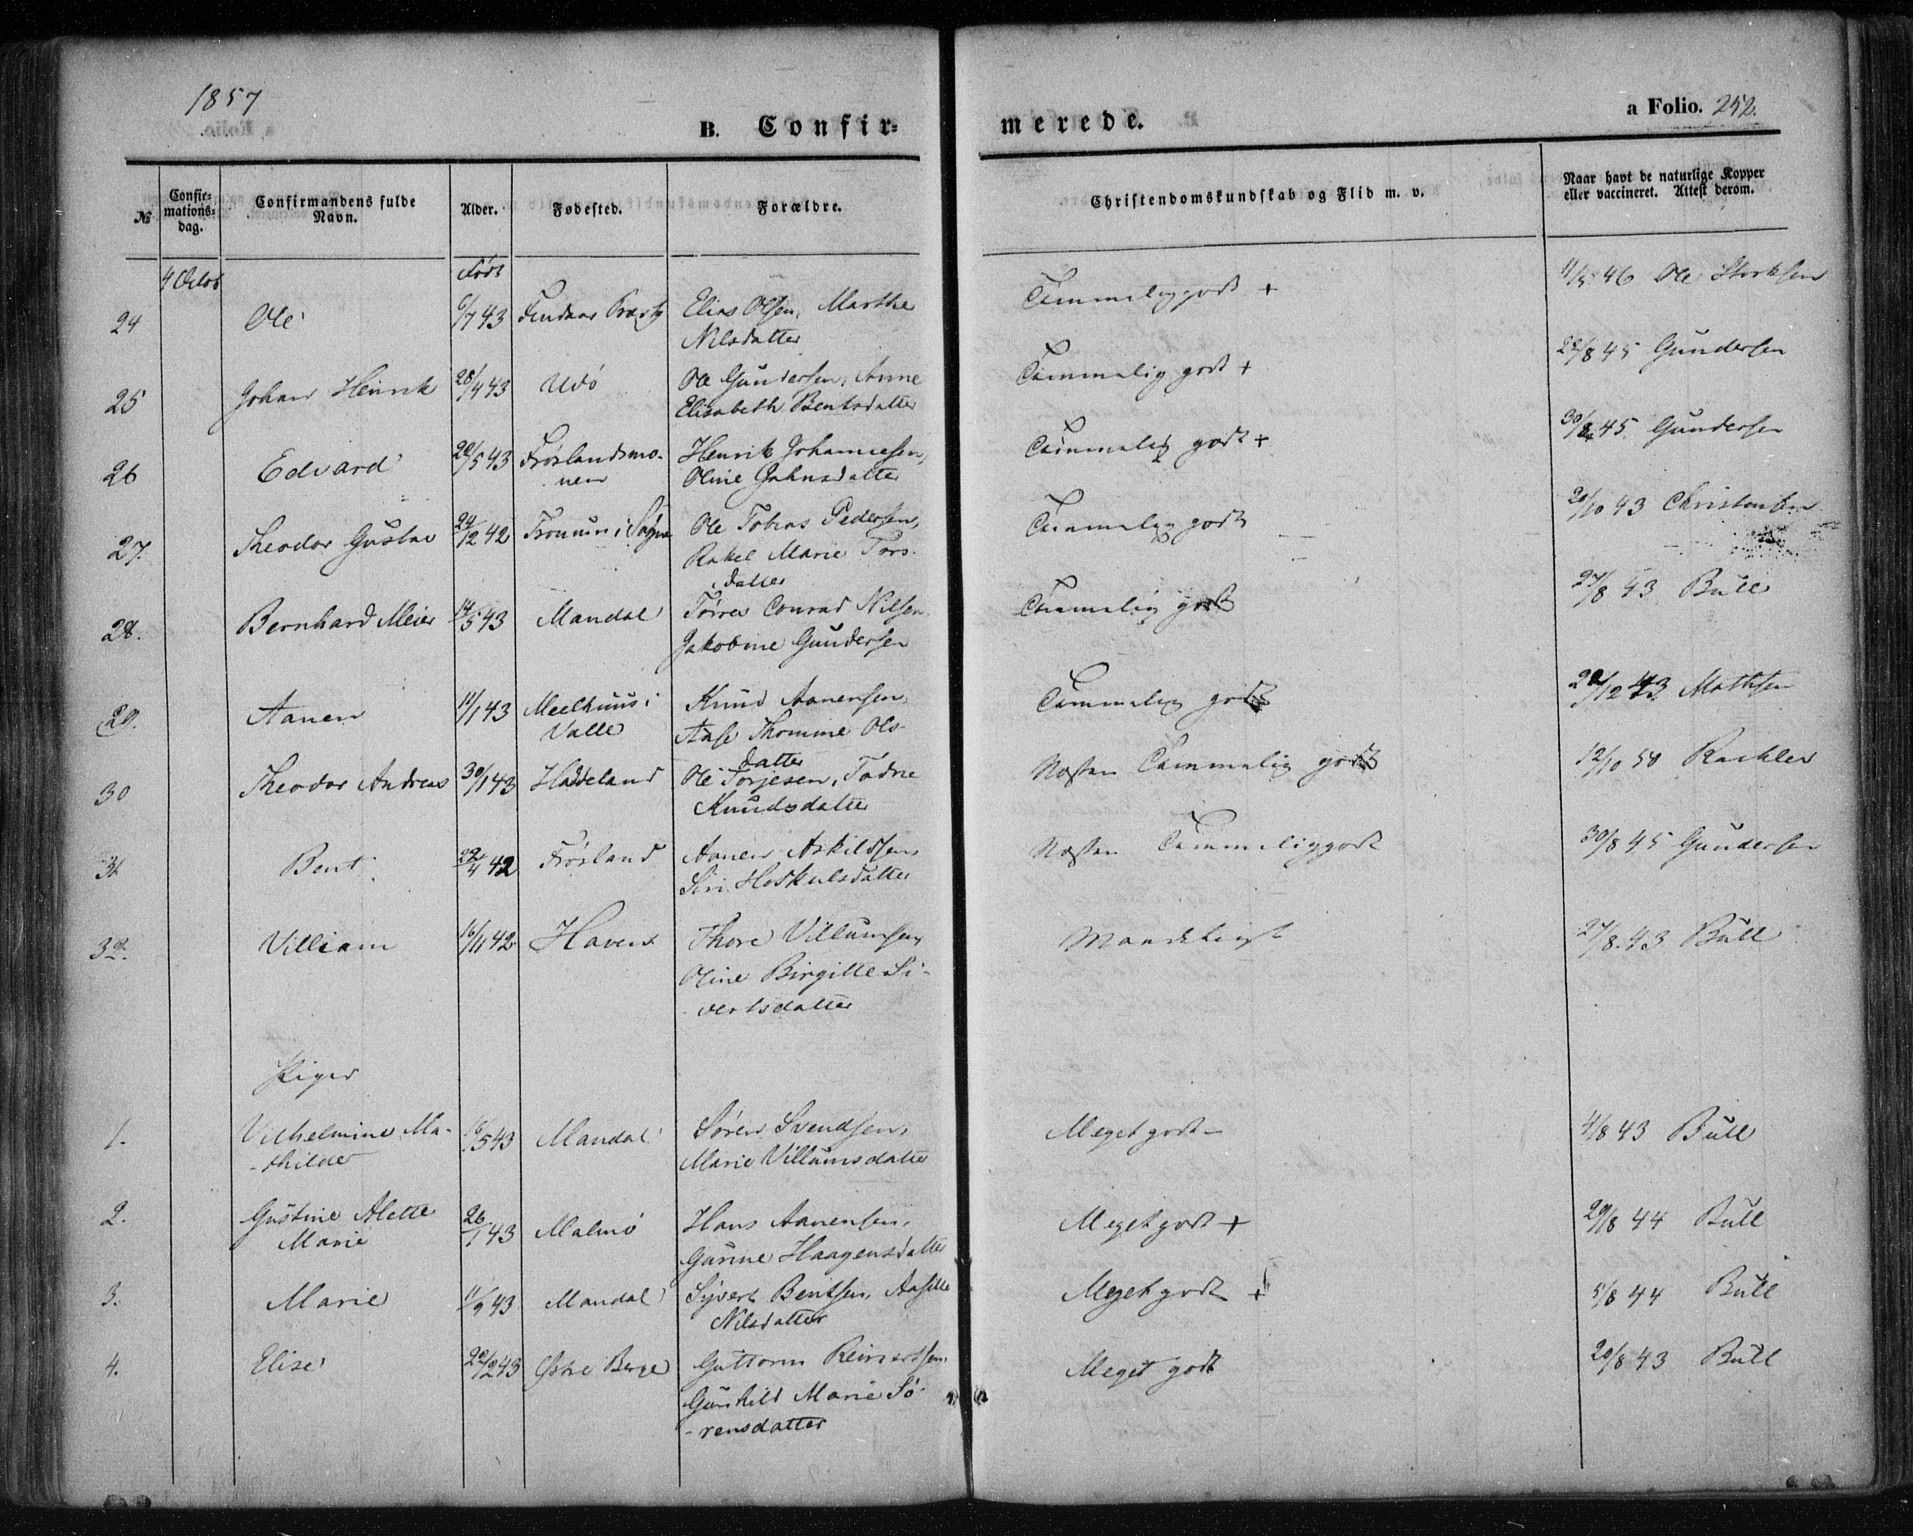 1857
B. Confir-
merede.
a Folio. 252.
№
Confir-
mations-
dag.
Confirmandens fulde
Navn.
Alder.
Fødested.
Forældre.
Christendomskundskab og Flid m. v.
Naar havt de naturlige Kopper
eller vaccineret. Attest derom.
4 Octob
Født
24 Ole 6/7 43 Elias Olsen, Marthe Temmelig godt + 11/5 46 Ole
Nilsdatter
25 Johan Henrik 28/4 43 Udø Ole Gundersen, Anne Temmelig godt + 28/8 45 Gundersen
Elisabeth Bentsdatter
26 Edvard 20/5 43 Frøslandsmo- Henrik Johannesen, Temmelig godt + 30/8 45 Gundersen
nen Oline Jahnsdatter
27. Theodor Gustav 24/12 42 i Søgne Ole Tobias Pedersen, Temmelig godt 20/10 43 Christensen
Rakel Marie Tors-
datter
28. Bernhard Meier 14/5 43 Mandal Tørres Conrad Nilsen Temmelig godt 27/8 43 Bull
Jakobine Gundersen
29. Aanen 14/1 43 Meelhuus i Knud Aanensen, Temmelig godt 12 43 Mathsen
Valle Aase Thomine Ols-
datter
30 Theodor Andreas 30/1 43 Haddeland Ole Torjesen, Tadne Næsten Temmelig godt 12/10 50
Knudsdatter
31 Bent 22/4 42 Frøsland Aanen Askildsen Næsten Temmelig godt 30/8 45 Gundersen
Siri Hoskulsdatter
32. Villiam 16/11 42 Thore Villumsen, Maadeligt 27/8 43 Bull
Oline Birgitte Si-
vertsdatter
Piger
1. Vilhelmine Ma- 16/5 43 Mandal Søren Svendsen, Meget godt – 4/8 43 Bull
thilde Marie Villumsdatter
2. Gustine Alette 26/1 43 Malmø Hans Aanensen, Meget godt + 29/8 44 Bull
Marie Gunne Haagensdatter
3. Marie 11/9 43 Mandal Syvert Bentsen, Meget godt + 5/8 44 Bull
Nilsdatter
4. Elise 22/2 43 Østre Berge Guttorm Reinertsen, Meget godt 20/8 43 Bull
Gunhild Marie Sø-
rensdatter